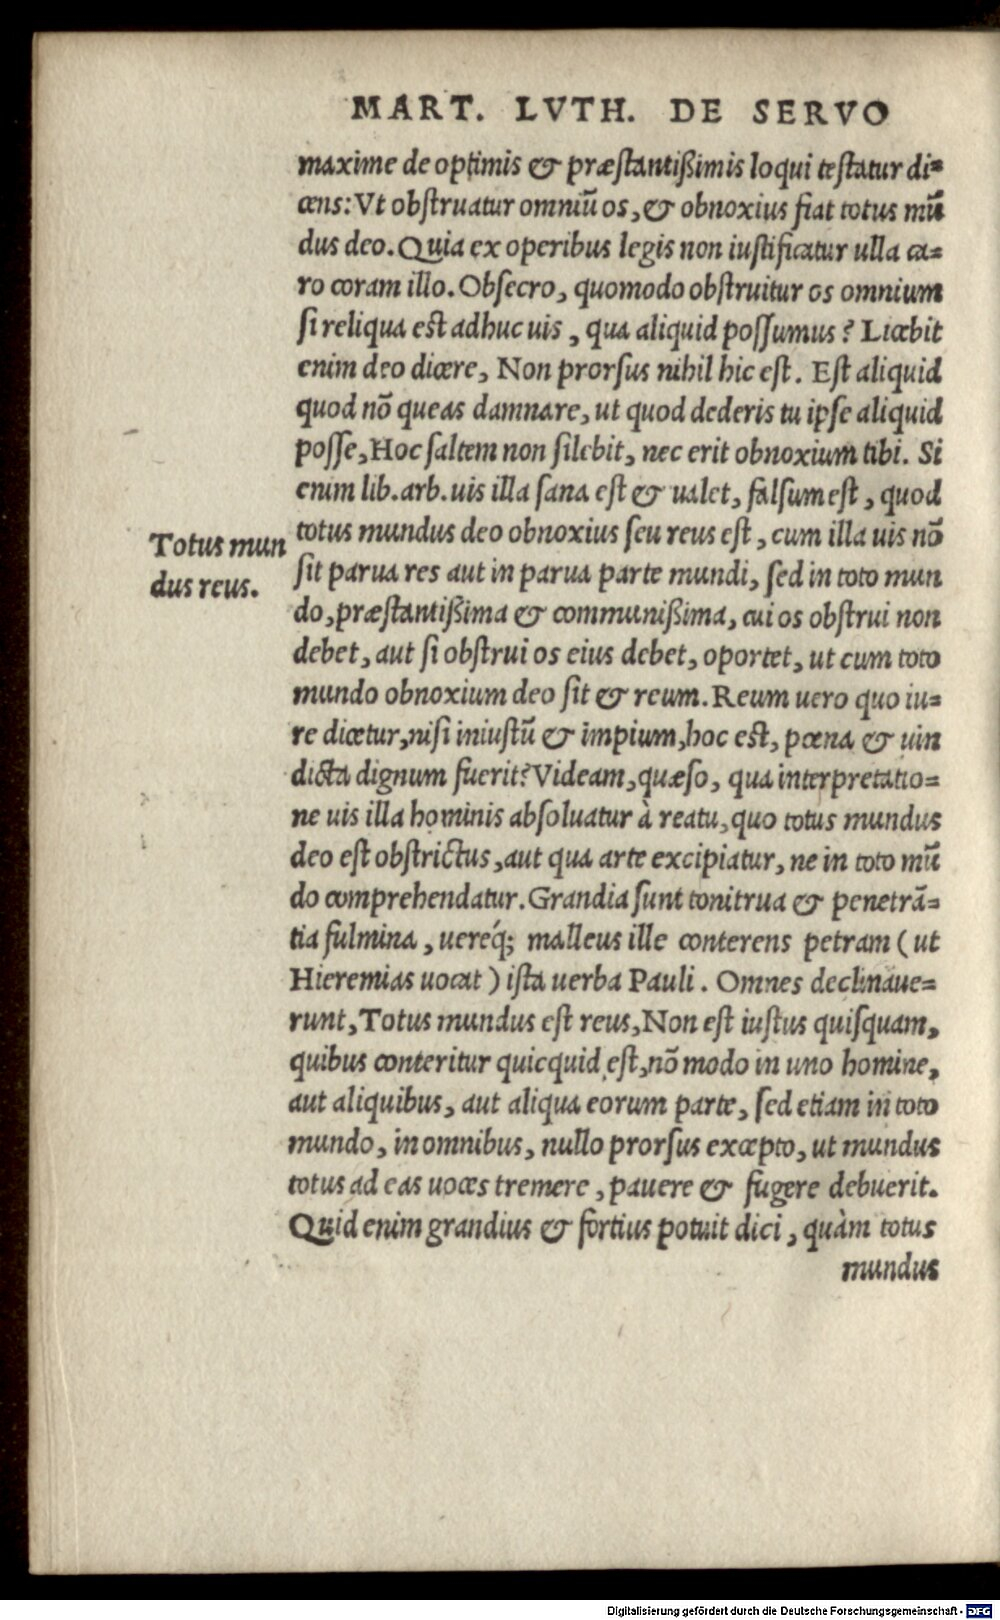 MART. LVTH. DE SERVO
maxime de optimis & præſtantißimis loqui teſtatur di=
cens: Vt obſtruatur omniũ os, & obnoxius fiat totus mũ
dus deo. Quia ex operibus legis non iuſtificatur ulla ca=
ro coram illo. Obſecro, quomodo obſtruitur os omnium
ſi reliqua eſt adhuc uis, qua aliquid poſſumus? Licebit
enim deo dicere, Non prorſus nihil hic eſt. Eſt aliquid
quod nõ queas damnare, ut quod dederis tu ipſe aliquid
poſſe, Hoc ſaltem non ſilebit, nec erit obnoxium tibi. Si
enim lib. arb. uis illa ſana eſt & ualet, falſum eſt, quod
totus mundus deo obnoxius ſeu reus eſt, cum illa uis nõ
Totus mun
dus reus.
ſit parua res aut in parua parte mundi, ſed in toto mun
do, præſtantißima & communißima, cui os obſtrui non
debet, aut ſi obſtrui os eius debet, oportet, ut cum toto
mundo obnoxium deo ſit & reum. Reum uero quo iu=
re dicetur, niſi iniuſtũ & impium, hoc eſt, pœna & uin
dicta dignum fuerit? Videam, quæſo, qua interpretatio=
ne uis illa hominis abſoluatur à reatu, quo totus mundus
deo eſt obſtrictus, aut qua arte excipiatur, ne in toto mũ
do comprehendatur. Grandia ſunt tonitrua & penetrã=
tia fulmina, uereq́; malleus ille conterens petram (ut
Hieremias uocat) iſta uerba Pauli. Omnes declinaue=
runt, Totus mundus eſt reus, Non eſt iuſtus quiſquam,
quibus conteritur quicquid eſt, nõ modo in uno homine,
aut aliquibus, aut aliqua eorum parte, ſed etiam in toto
mundo, in omnibus, nullo prorſus excepto, ut mundus
totus ad eas uoces tremere, pauere & fugere debuerit.
Quid enim grandius & fortius potuit dici, quàm totus
mundus
Digitalisierung gefördert durch die Deutsche Forschungsgemeinschaft - DFG